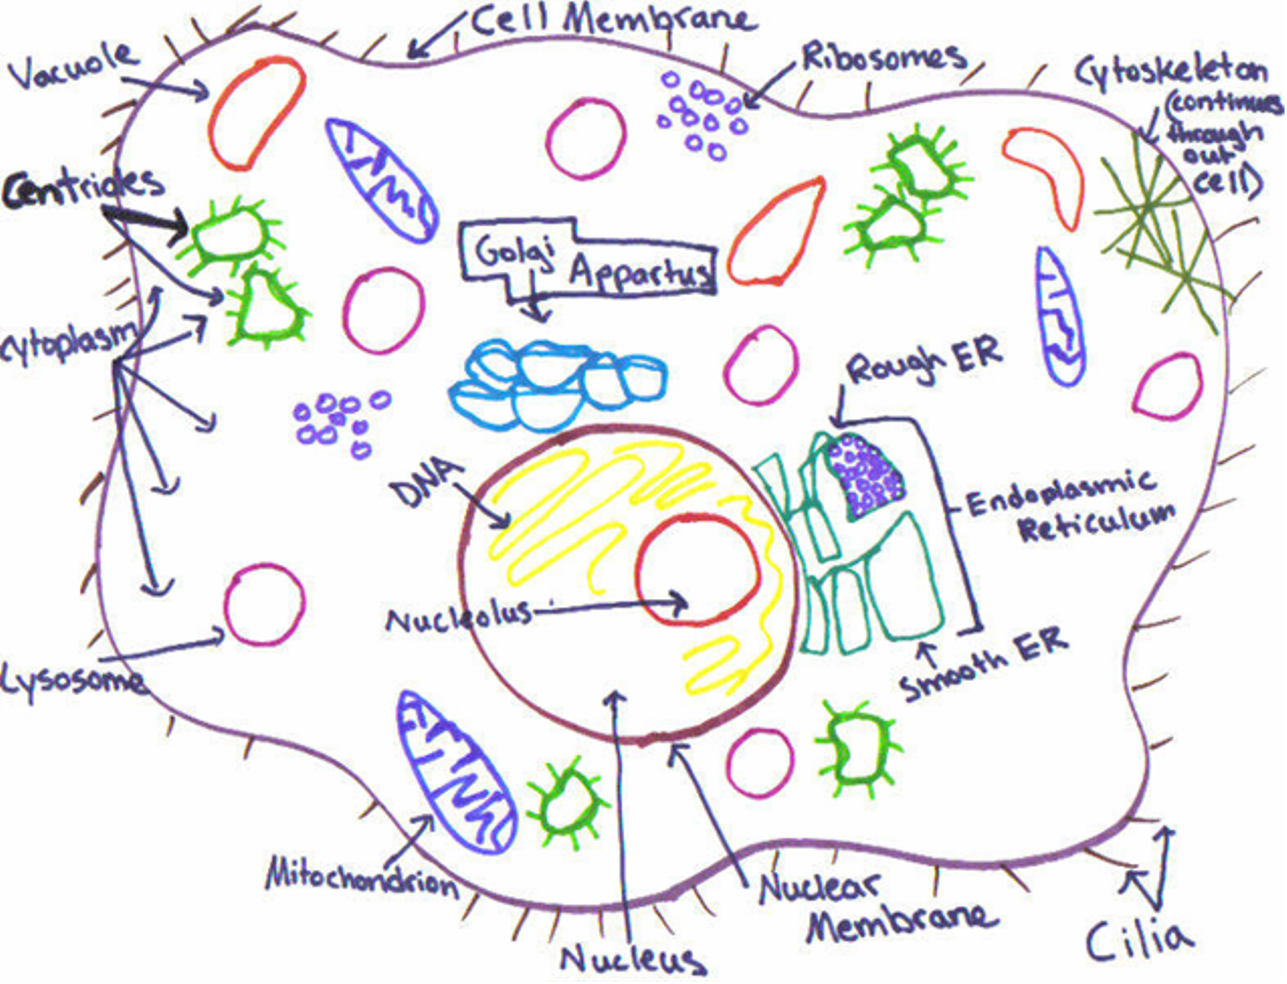 Cell Membrane
Vacuole
Ribosomes
Cytoskeleton
(continues
through
out
cell)
Centrioles
Golgi
Appartus
Cytoplasm
Rough ER
DNA
Endoplasmic
Reticulum
Nucleolus
Smooth ER
Lysosome
Mitochondrion
Nuclear
Membrane
Nucleus
Cilia